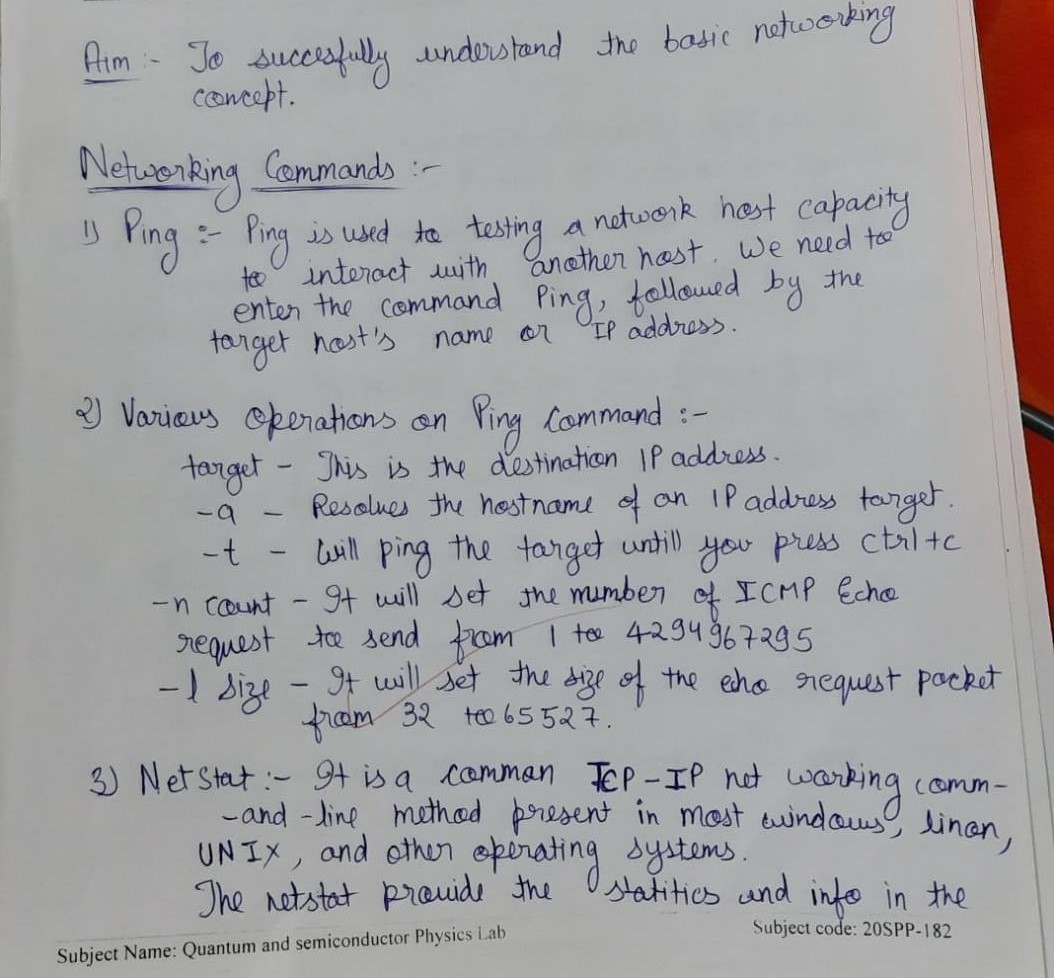 Aim :- To succesfully understand the basic networking
concept.
Networking Commands :-
1) Ping :- Ping is used to testing a network host capacity
to interact with another host. We need to
enter the command Ping, followed by the
target host's name or IP address.
2) Various Operations on Ping Command :-
target - This is the destination IP address.
-a - Resolves the hostname of an IP address target.
-t - Will ping the target untill you press ctrl+c
-n count - It will set the number of ICMP Echo
request to send from 1 to 4294967295
-l size - It will set the size of the echo request packet
from 32 to 65527.
3) NetStat :- It is a common TCP-IP net working comm-
-and -line method present in most windows, linan,
UNIX, and other operating systems.
The netstat provide the statitics and info in the
Subject Name: Quantum and semiconductor Physics Lab
Subject code: 20SPP-182